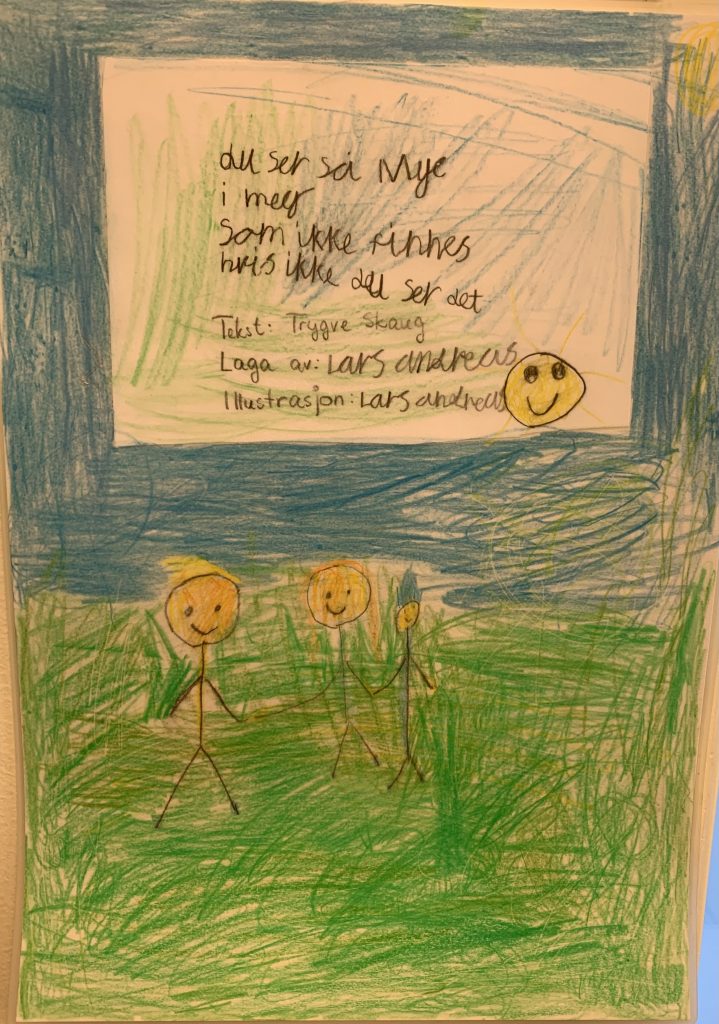 du ser så Mye
i meg
som ikke finnes
hvis ikke du ser det
Tekst: Trygve Skaug
Laga av: Lars andreas
Illustrasjon: Lars andreas